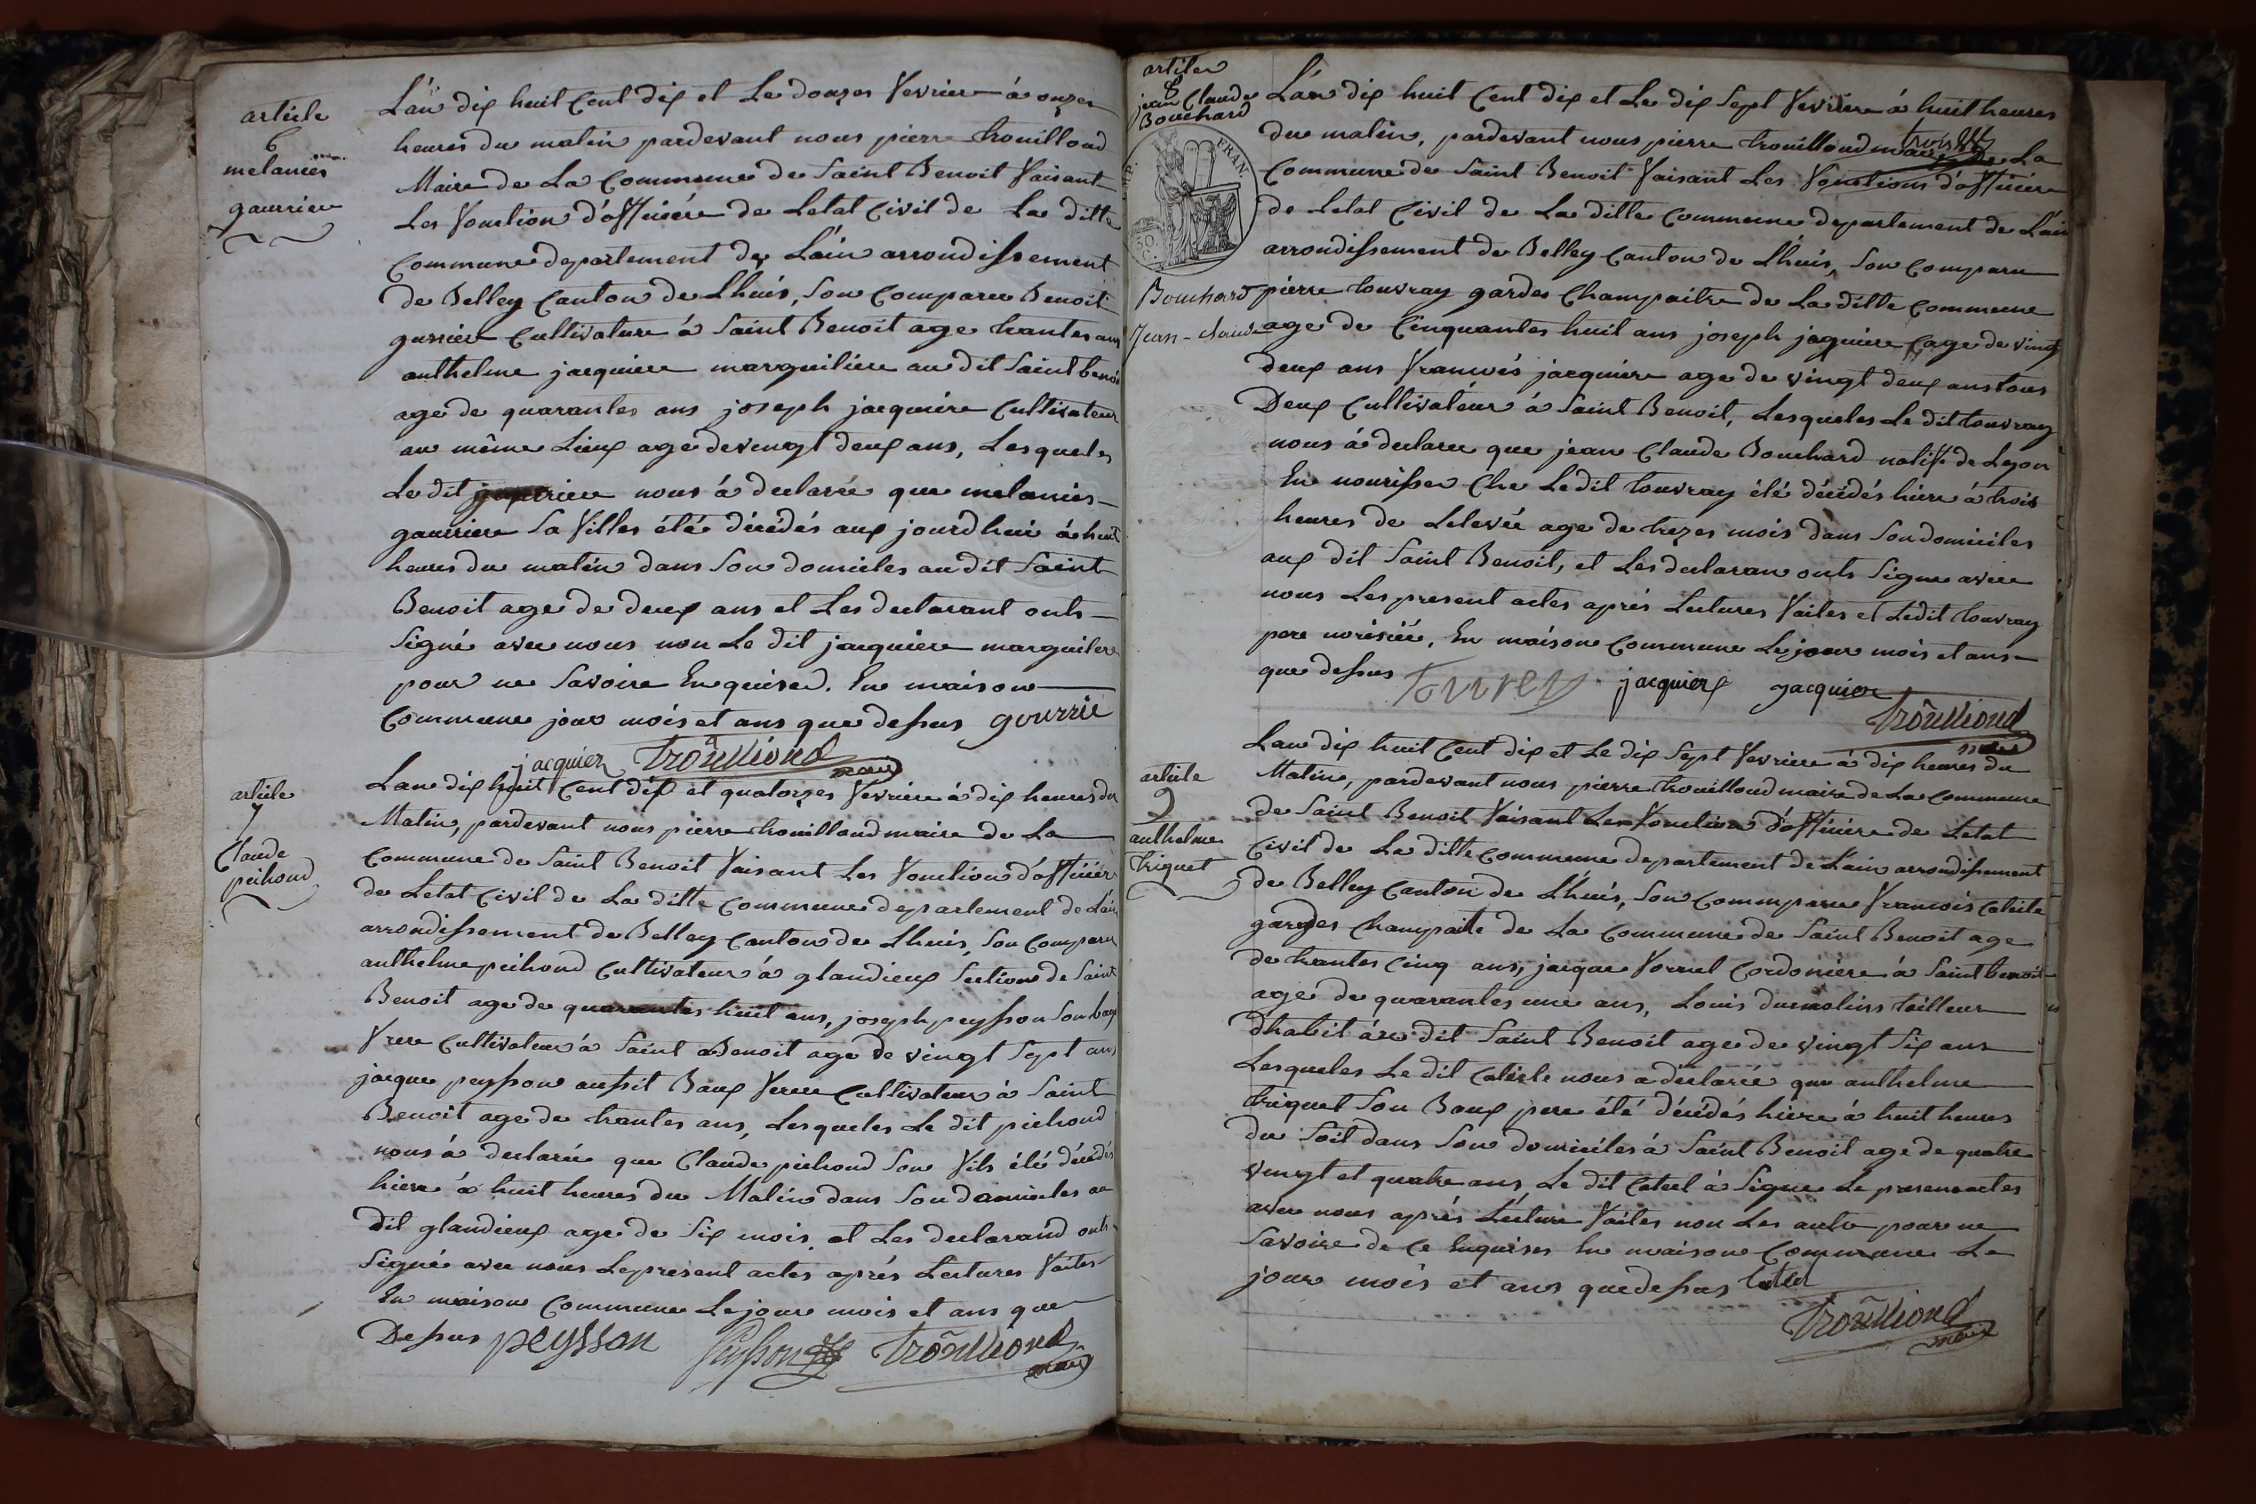 article
6
melanies
gaurrier
L'an dix huit Cent dix et Le douzes fevrier à onzes
heures du matin pardevant nous pierre trouilloud
Maire de La Commune de Saint Benoit faisant
Les fonction d'officiére de Letat Civil de La ditte
Commune departement de L'ain arrondissement
de Belley Canton de Lhuis, Son Comparu Benoit
gurrier Cultivature à Saint Benoit age trantes ans
anthelme jacquiere marguiliere au dit Saint benoi
age de quarantes ans joseph jacquiére Cultivateur
au même Lieux age de vingt deux ans, Lesqueles
Le dit gaurrier nous á declarée que melanies
gaurriere Sa filles été décédés aux jourdhui á huit
heures du matin dans Son domiciles au dit Saint
Benoit age de deux ans et Les declarant onts
Signé avec nous non Le dit jacquiére marguilere
pour ne Savoire Enquised. En maison
Commune jour mois et ans que dessus gourrié
jacquier trouilloud maire
article
7
Claude
peihoud
Lan dix huit Cent dix et quatorzes fevrier à dix heures du
Matin, pardevant nous pierre trouilloud maire de La
Commune de Saint Benoit faisant Les fonction d'officiér
de Letat Civil de La ditte Commune departement de L'ain
arrondissement de Belley Canton de Lhuis, Son Comparu
anthelme peihoud Cultivateur à glandieux Section de Saint
Benoit age de quarantes huit ans, joseph peysson Son baux
frere Cultivateur à Saint Benoit age de vingt Sept ans
jacque peysson aussit Baux frere Cultivateur à Saint
Benoit age de trantes ans, Lesqueles Le dit peihoud
nous à declarée que Claude peihoud Son fils été décédés
hiere à huit heures du Matin dans Son domiciles au
dit glandieux age de Six mois et Les declarand onts
Signé avec nous Le present actes aprés Lectures faites
En maison Commune Le jour mois et ans que
Dessus peysson peysson trouilloud
maire
articles
8
jean Claude
Bouchard
FRAN.
30
C.
Bouchard
Jean-claude
L'an dix huit Cent dix et Le dix Sept fevrier á huit heures
du matin, pardevant nous pierre trouilloud maire de La
Commune de Saint Benoit faisant Les fonctions d'officiére
de Letat Civil de La ditte Commune departement de L'ain
arrondissement de Belley Canton de Lhuis, Son Comparu
pierre touvray gardes Champaitre de La ditte Commune
age de Cinquantes huit ans joseph jaquiere age de vingt
deux ans francois jacquiere age de vingt deux ans tous
Deux Cultivateur à Saint Benoit, Lesqueles Le dit touvray
nous á declaree que jean Claude Bouchard natif de Lyon
En nourisse Che Ledit touvray été décédés hiere à trois
heures de Lelevée age de trezes mois dans Son domiciles
aux dit Saint Benoit, et Les declaran onts Signe avec
nous Les present actes aprés Lectures faites et Ledit touvray
pere norisiée, En maison Commune Le jour mois et ans
que dessus jacquier jacquier
trouilloud
maire
article
9
anthelme
triquet
Lan dix huit Cent dix et Le dix Sept fevrier à dix heures du
Matin, pardevant nous pierre trouilloud maire de La Commune
de Saint Benoit faisant Les fonction d'officiere de Letat
Civil de La ditte Commune departement de L'ain arrondissement
de Belley Canton de Lhuis, Son Commparu francois
gardes Champaite de La Commune de Saint Benoit age
de trantes Cinq ans, jacque Cordoniere à Saint benoit
age de quarantes une ans, Louis dumolins tailleur
dhabit áu dit Saint Benoit age de vingt Six ans
Lesqueles Le dit nous a declarée que anthelme
triquet Son Baux pere été décédés hiere à huit heures
du Soit dans Son domiciles à Saint Benoit age de quatre
vingt et quatre ans Le dit à Signe Le presens actes
avec nous aprés Lecture faites non Les autre pour ne
Savoire de Ce Enquises En maison Commune Le
jour mois et ans que dessus
trouilloud
maire